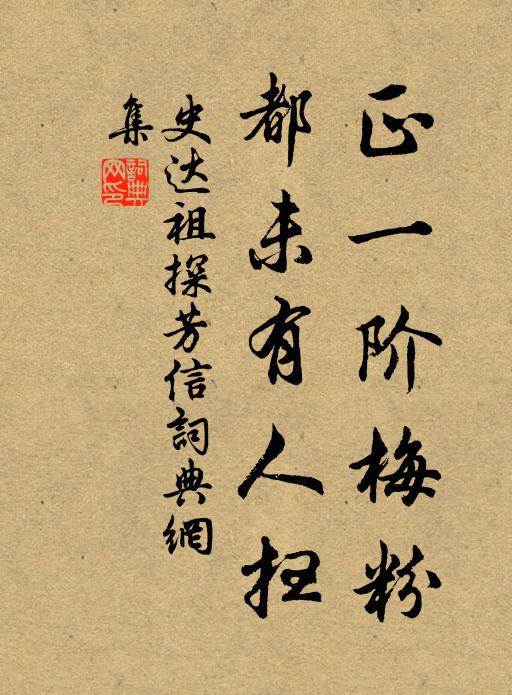 正一阶梅粉
都未有人扫
史达祖探芳信詞典網
集
詞典网印